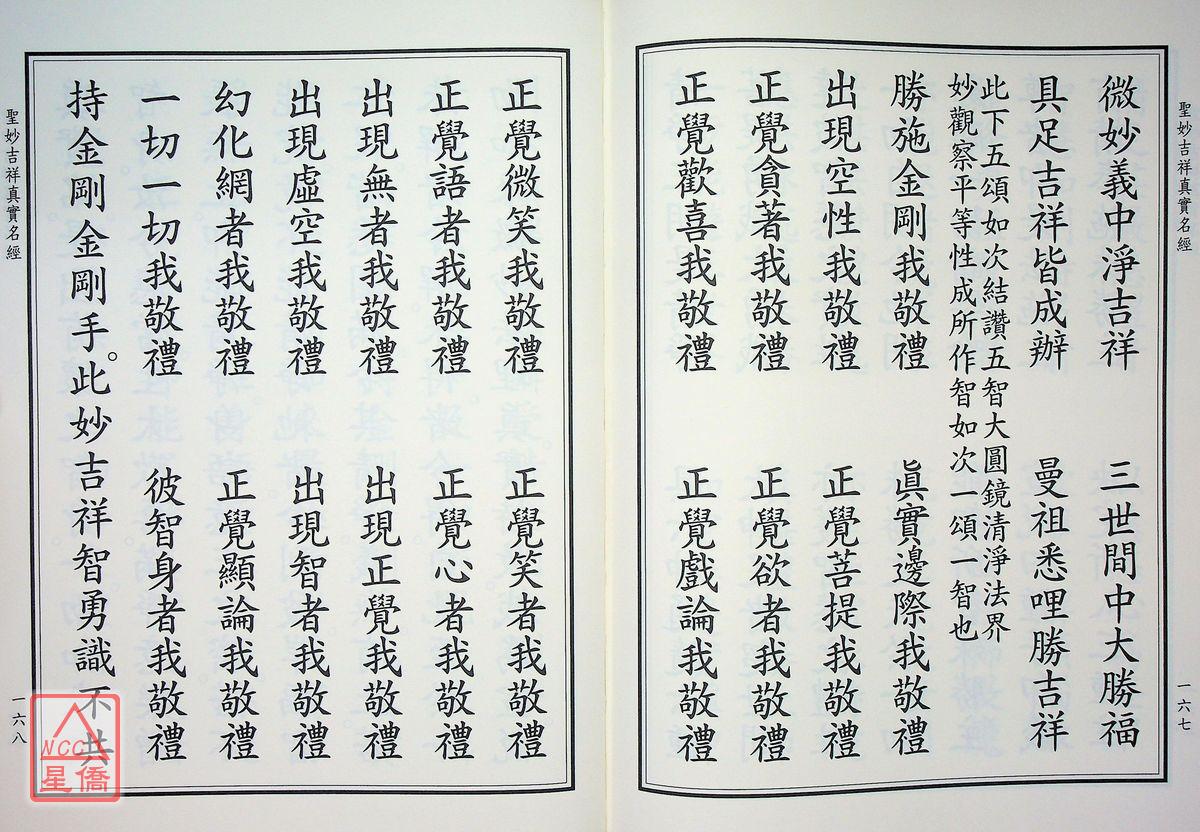 聖妙吉祥真實名經
一六七
微妙義中淨吉祥 三世間中大勝福
具足吉祥皆成辦 曼祖悉哩勝吉祥
此下五頌如次結讚五智大圓鏡清淨法界
妙觀察平等性成所作智如次一頌一智也
勝施金剛我敬禮 眞實邊際我敬禮
出現空性我敬禮 正覺菩提我敬禮
正覺貪著我敬禮 正覺欲者我敬禮
正覺歡喜我敬禮 正覺戲論我敬禮
正覺微笑我敬禮 正覺笑者我敬禮
正覺語者我敬禮 正覺心者我敬禮
出現無者我敬禮 出現正覺我敬禮
出現虛空我敬禮 出現智者我敬禮
幻化網者我敬禮 正覺顯論我敬禮
一切一切我敬禮 彼智身者我敬禮
持金剛金剛手。此妙吉祥智勇識不共
聖妙吉祥真實名經
一六八
NCC
星僑